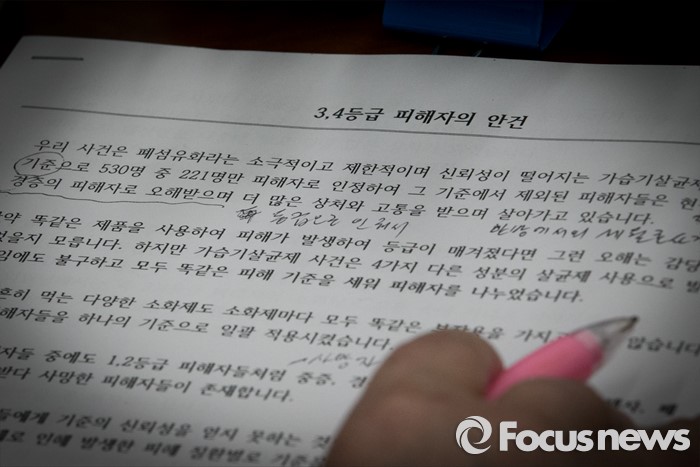 3.4등급 피해자의 안건
우리 사건은 폐섬유화라는 소극적이고 제한적이며 신뢰성이 떨어지는 가습기살균제
기준으로 530명 중 221명만 피해자로 인정하여 그 기준에서 제외된 피해자들은 현
경증의 피해자로 오해받으며 더 많은 상처와 고통을 받으며 살아가고 있습니다.
똑같은 제품을 사용하여 피해가 발생하여 등급이 매겨졌다면 그런 오해는 감당
모릅니다. 하지만 가습기살균제 사건은 4가지 다른 성분의 살균제 사용으로
불구하고 모두 똑같은 피해 기준을 세워 피해자를 나누었습니다.
흔히 먹는 다양한 소화제도 소화제마다 모두 똑같은
하나의 기준으로 일괄 적용시켰습니다.
중에도 1.2등급 피해자들처럼 중증,
사망한 피해자들이 존재합니다.
기준의 신뢰성을 얻지 못하는
인해 발생한 피해 질환별로
Focusnews